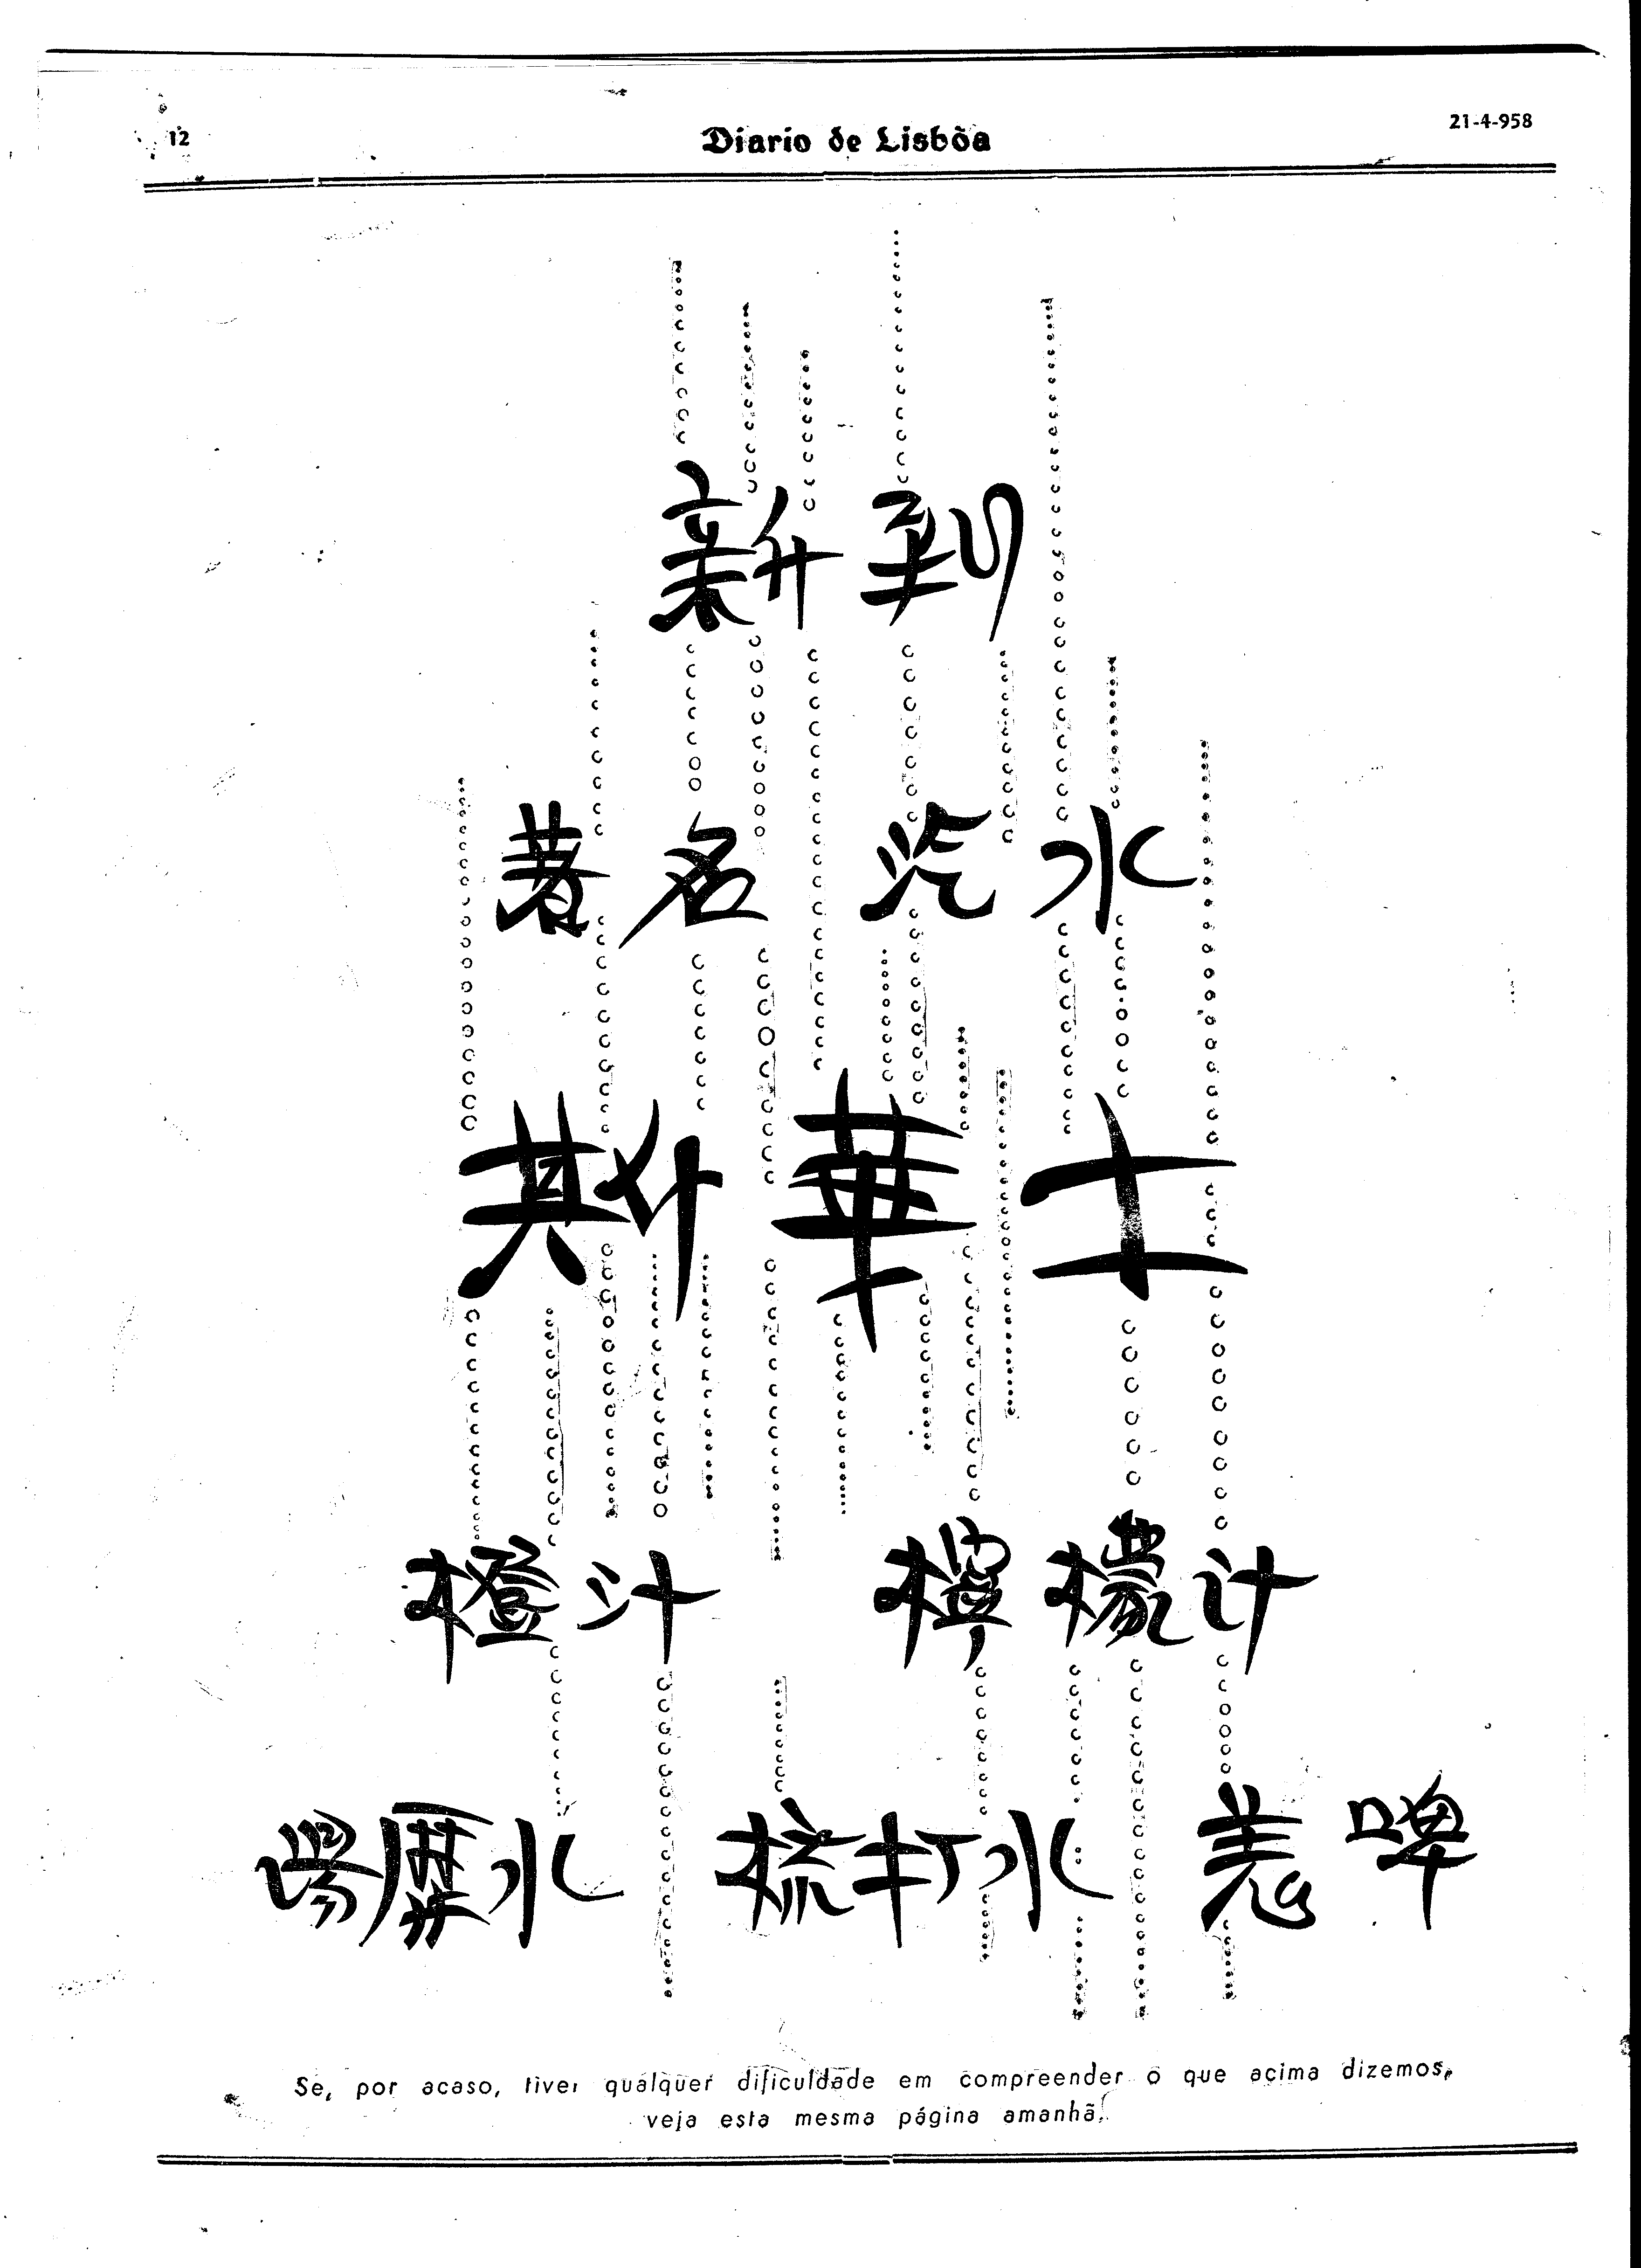 12 Diario de Lisbôa 21-4-958
新到
著名 汽水
斯華士
橙汁 檸檬汁
水 梳打水 啤
Se, por acaso, tiver qualquer dificuldade em compreender o que acima dizemos,
veja esta mesma página amanhã.